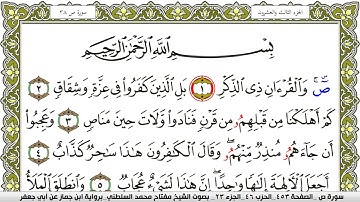 الجزء الثالث والعشرون سورة ص ٣٨
بِسْمِ اللَّهِ الرَّحْمَٰنِ الرَّحِيمِ
صٓ ۚ وَالْقُرْءَانِ ذِي الذِّكْرِ ١ بَلِ الَّذِينَ كَفَرُوا فِي عِزَّةٍ وَشِقَاقٍ ٢
كَمْ أَهْلَكْنَا مِن قَبْلِهِمُ مِن قَرْنٍ فَنَادَوا وَّلَاتَ حِينَ مَنَاصٍ ٣ وَعَجِبُوا
أَن جَاءَهُمُ مُنذِرٌ مِنْهُمُ ۖ وَقَالَ الْكَٰفِرُونَ هَٰذَا سَٰحِرٌ كَذَّابٌ ٤
أَجَعَلَ الْآلِهَةَ إِلَٰهًا وَٰحِدًا ۖ إِنَّ هَٰذَا لَشَيْءٌ عُجَابٌ ٥ وَانطَلَقَ الْمَلَأُ
سورة ص - الصفحة ٤٥٣ - الحزب ٤٦ - الجزء ٢٣ - بصوت الشيخ مفتاح محمد السلطني برواية ابن جماز عن أبي جعفر